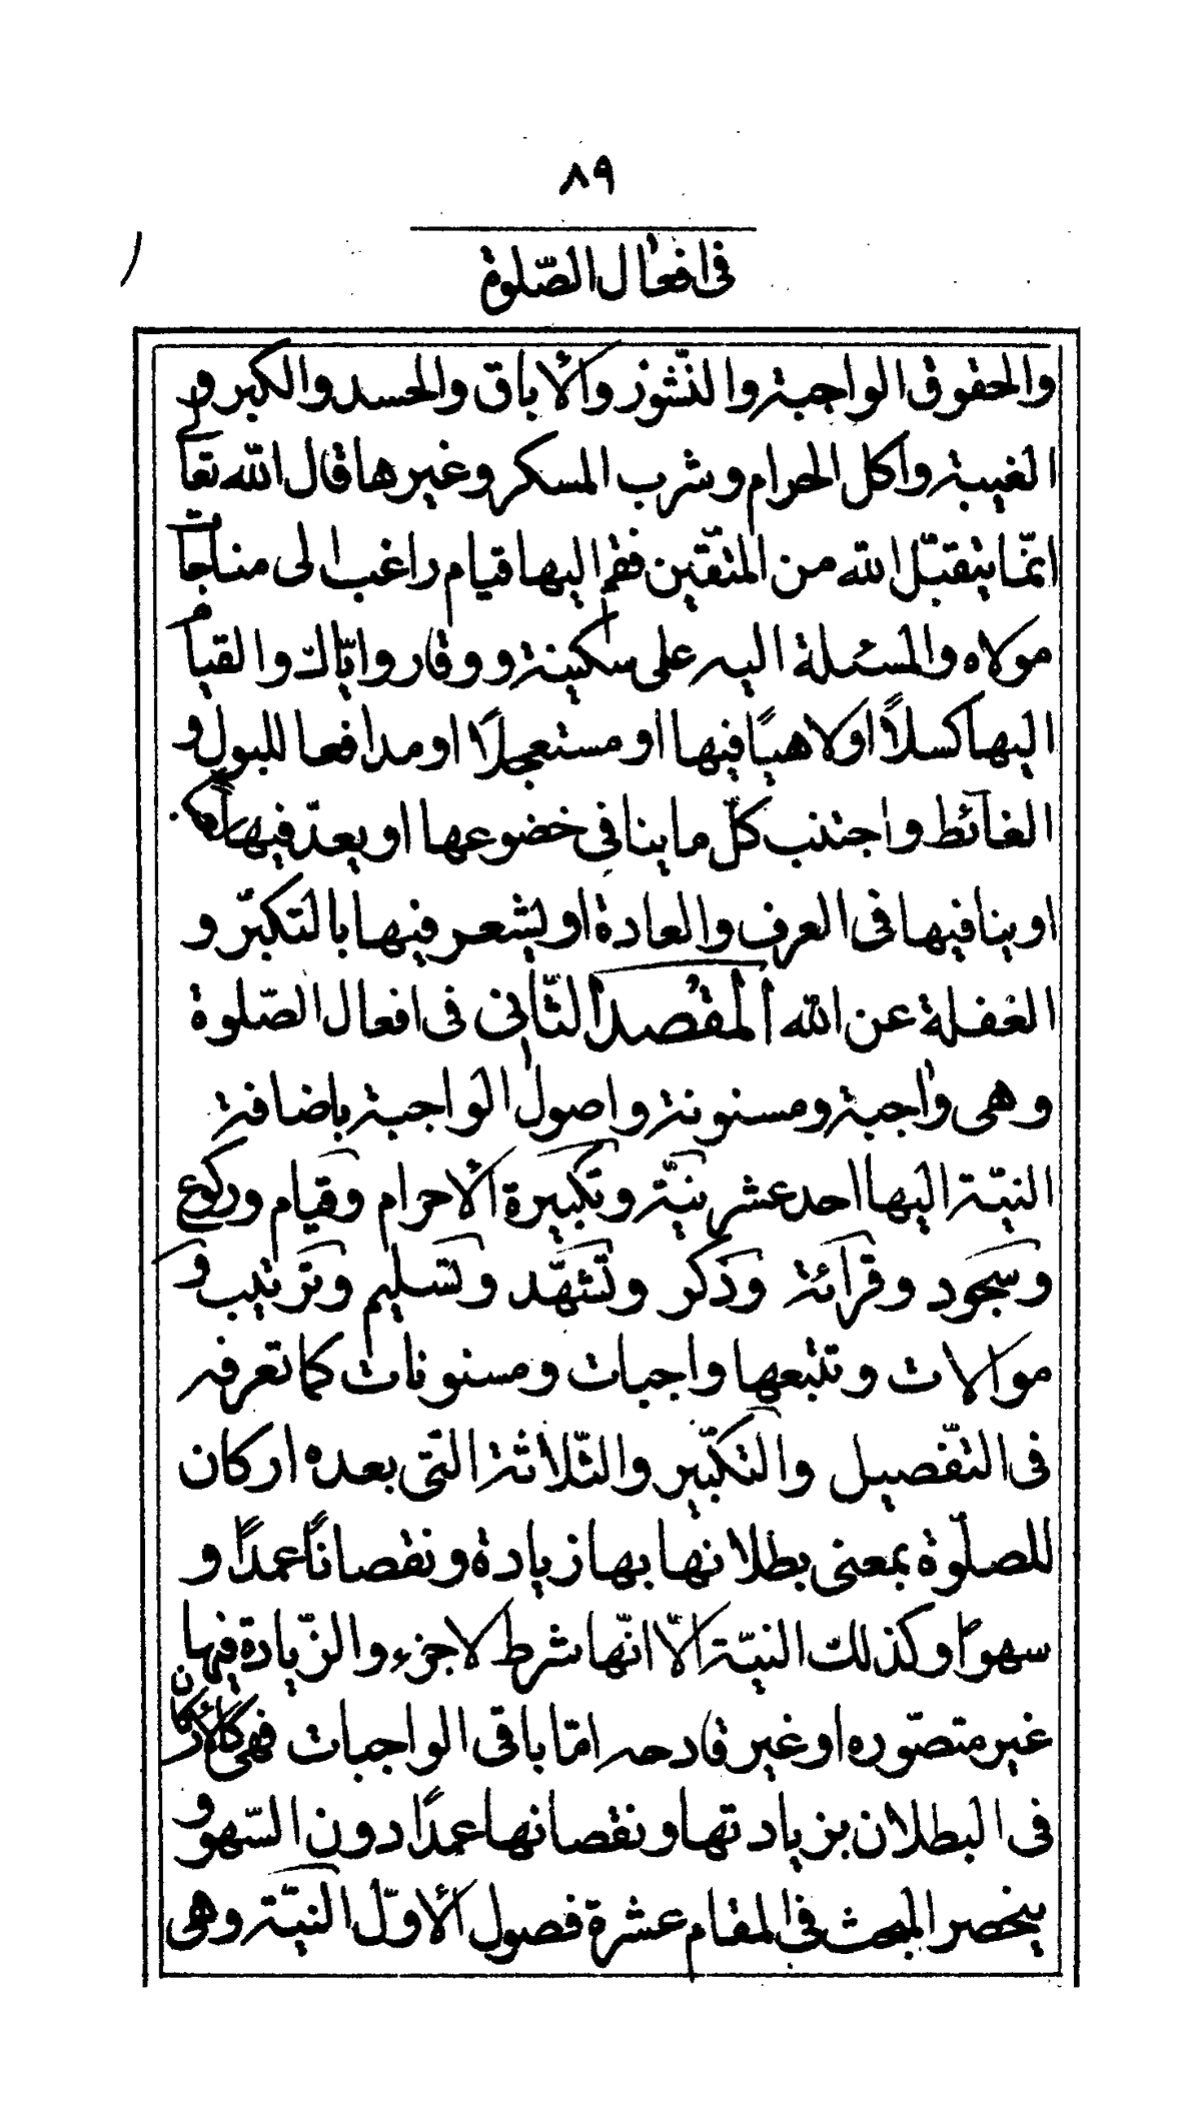 ٨٩
فى افعال الصّلوة
والحقوق الواجبة والنّشوز والأباق والحسد والكبر و
الغيبة واكل الحرام وشرب المسكر وغيرها قال الله تعالى
انّما يتقبّل الله من المتّقين فقم اليها قيام راغب الى مناجات
مولاه والمسئلة اليه على سكينة ووقار وايّاك والقيام
اليها كسلاً او لاهياً فيها او مستعجلاً او مدافعا للبول و
الغائط واجتنب كلّ ما ينافى خضوعها او يعدّ فيها
او ينافيها فى العرف والعادة او يشعر فيها بالتكبّر و
الغفلة عن الله المقصد الثّانى فى افعال الصّلوة
وهى واجبة ومسنونة واصول الواجبة باضافة
النيّة اليها احد عشر نيّة وتكبيرة الأحرام وقيام وركوع
وسجود وقرائة وذكر وتشهّد وتسليم وترتيب و
موالات وتتبعها واجبات ومسنونات كما تعرفه
فى التّفصيل والتكبير والثّلاثة الّتى بعده اركان
للصلوة بمعنى بطلانها بها زيادة ونقصاناً عمداً و
سهواً وكذلك النيّة الّا انّها شرط لا جزء والزّيادة فيها
غير متصّوره او غير قادحه امّا باقى الواجبات فهى كالأركان
فى البطلان بزيادتها ونقصانها عمداً دون السّهو و
ينحصر المبحث فى المقام عشرة فصول الأوّل النيّة وهى